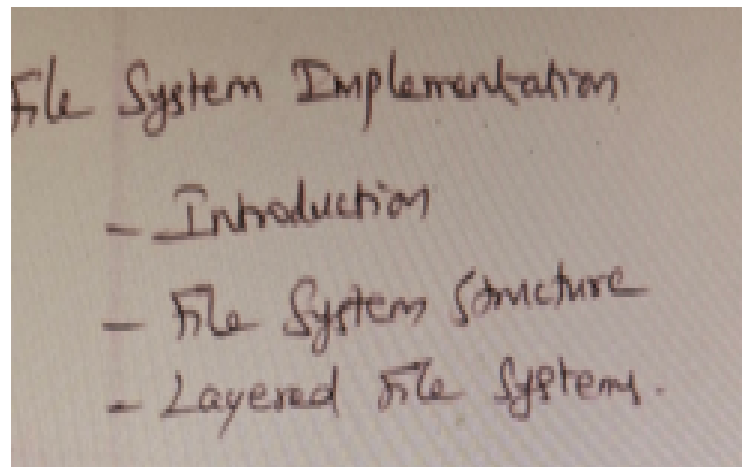 File System Implementation
- Introduction
- File System Structure
- Layered File Systems.